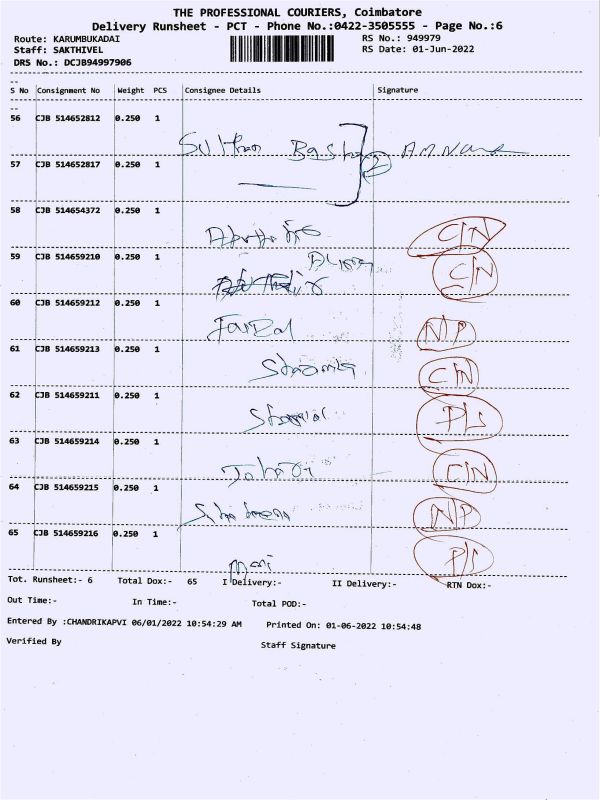 THE PROFESSIONAL COURIERS, Coimbatore
Delivery Runsheet - PCT - Phone No.:0422-3505555 - Page No.:6
Route: KARUMBUKADAI RS No.: 949979
Staff: SAKTHIVEL RS Date: 01-Jun-2022
DRS No.: DCJB94997906
S No Consignment No Weight PCS Consignee Details Signature
56 CJB 514652812 0.250 1
Sulthan Basha 2
57 CJB 514652817 0.250 1
58 CJB 514654372 0.250 1
C/N
59 CJB 514659210 0.250 1
C/N
60 CJB 514659212 0.250 1
Faizal N/P
61 CJB 514659213 0.250 1
C/N
62 CJB 514659211 0.250 1
P/S
63 CJB 514659214 0.250 1
C/N
64 CJB 514659215 0.250 1
N/P
65 CJB 514659216 0.250 1
Mani P/S
Tot. Runsheet:- 6 Total Dox:- 65 I Delivery:- II Delivery:- RTN Dox:-
Out Time:- In Time:- Total POD:-
Entered By :CHANDRIKAPVI 06/01/2022 10:54:29 AM Printed On: 01-06-2022 10:54:48
Verified By Staff Signature